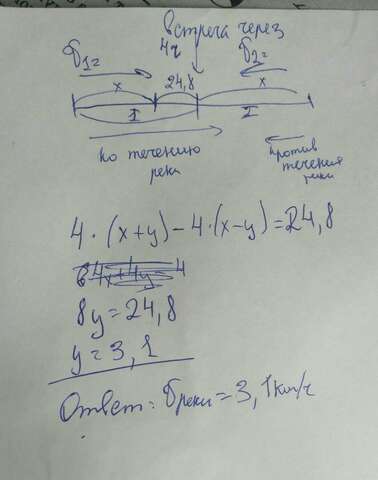 встреча через
4ч
v₁= v₂=
x 24,8 x
I I
по течению реки
против течения реки
4·(x+y)-4·(x-y)=24,8
8y=24,8
y=3,1
Ответ: vреки=3,1км/ч